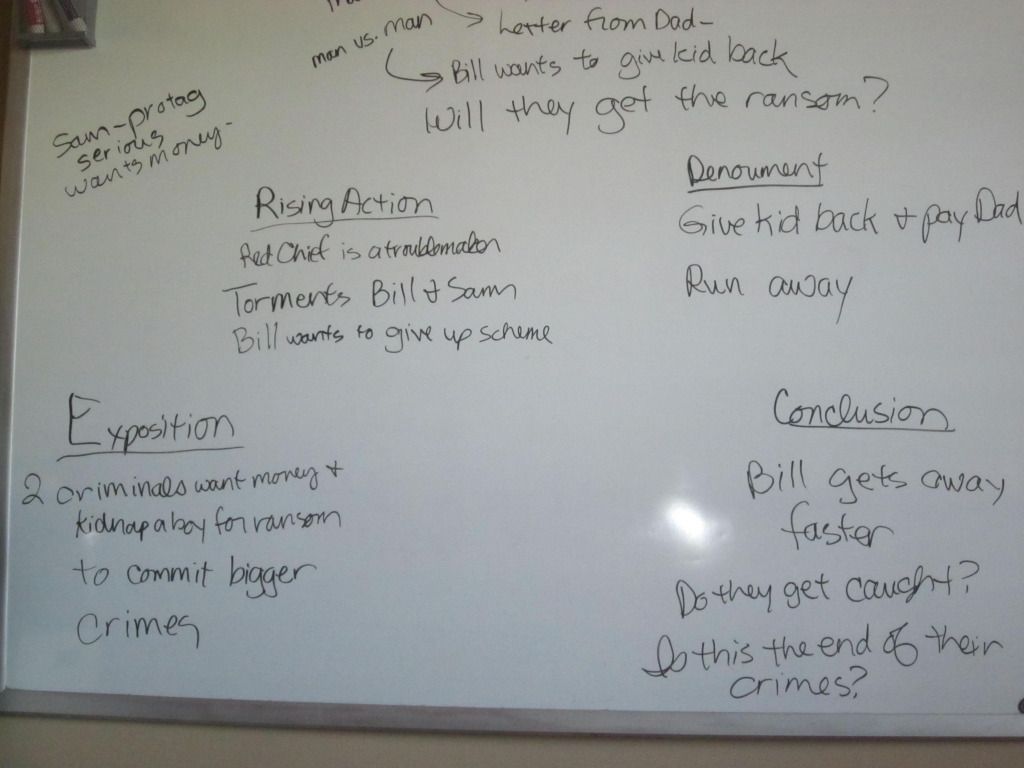 man vs. man
Letter from Dad-
Bill wants to give kid back
Will they get the ransom?
Sam-protag
serious
wants money-
Rising Action
Red Chief is a troublemaker
Torments Bill & Sam
Bill wants to give up scheme
Denoument
Give kid back & pay Dad
Run away
Exposition
2 criminals want money &
kidnap a boy for ransom
to commit bigger
crimes
Conclusion
Bill gets away
faster
Do they get caught?
Is this the end of their
crimes?